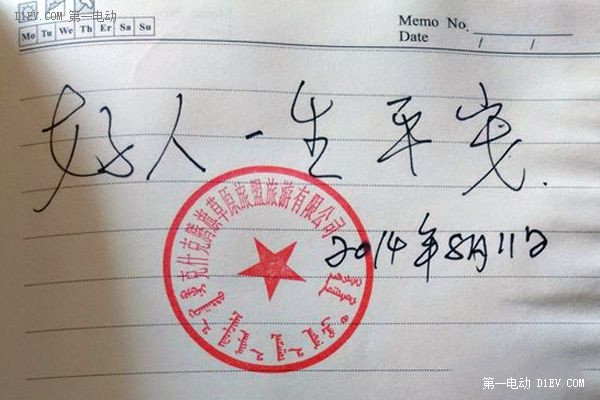 D1EV.COM 第一电动
Mo Tu We Th Fr Sa Su
Memo No.
Date / /
好人一生平安.
克什克腾 草原旅盟旅游有限公司
2014年8月11日
第一电动 D1EV.COM